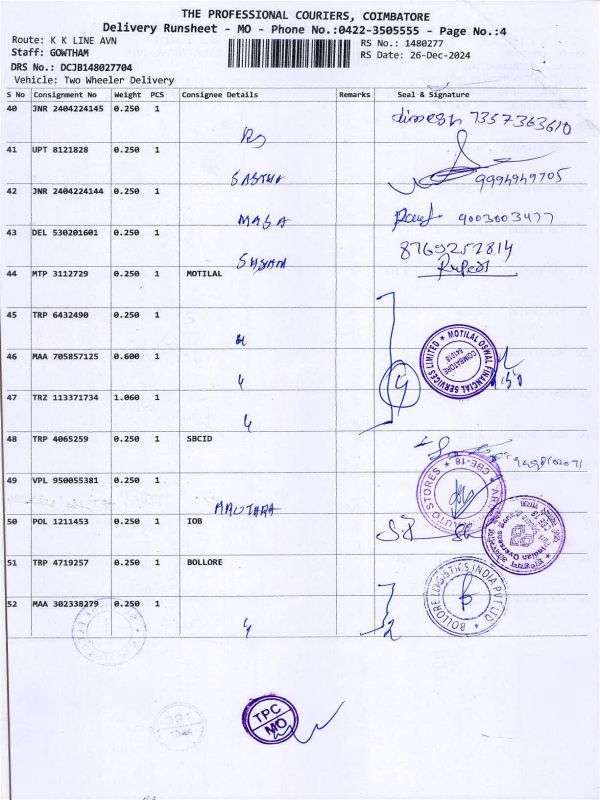 THE PROFESSIONAL COURIERS, COIMBATORE
Delivery Runsheet - MO - Phone No.:0422-3505555 - Page No.:4
Route: K K LINE AVN
RS No.: 1480277
Staff: GOWTHAM
RS Date: 26-Dec-2024
DRS No.: DCJB148027704
Vehicle: Two Wheeler Delivery
S No Consignment No Weight PCS Consignee Details Remarks Seal & Signature
40 JNR 2404224145 0.250 1 7357363610
41 UPT 8121828 0.250 1
42 JNR 2404224144 0.250 1 9003003477
43 DEL 530201601 0.250 1 8769252814
44 MTP 3112729 0.250 1 MOTILAL
45 TRP 6432490 0.250 1
46 MAA 705857125 0.600 1
MOTILAL OSWAL FINANCIAL SERVICES LIMITED
COIMBATORE
641018
47 TRZ 113371734 1.060 1 4
48 TRP 4065259 0.250 1 SBCID
49 VPL 950055381 0.250 1
AUTO STORES CBE-18
50 POL 1211453 0.250 1 IOB
Indian Overseas Bank
51 TRP 4719257 0.250 1 BOLLORE
BOLLORE LOGISTICS INDIA PVT LTD
52 MAA 302338279 0.250 1 2
TPC
MO